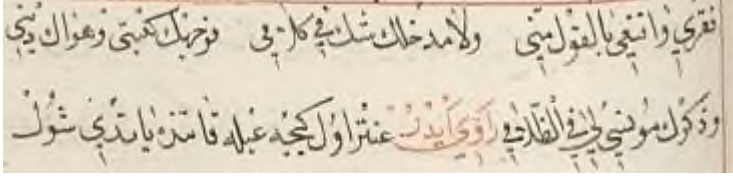 فقري وانتفى بالقول منى ولا مدخلك شك في كلامي فوجهك كعبتى وهواك دينى
وذكرك مونسي لي في الظلام راوي ايدر عنتر اول كيجه عبله قاتنده ياتدي شول